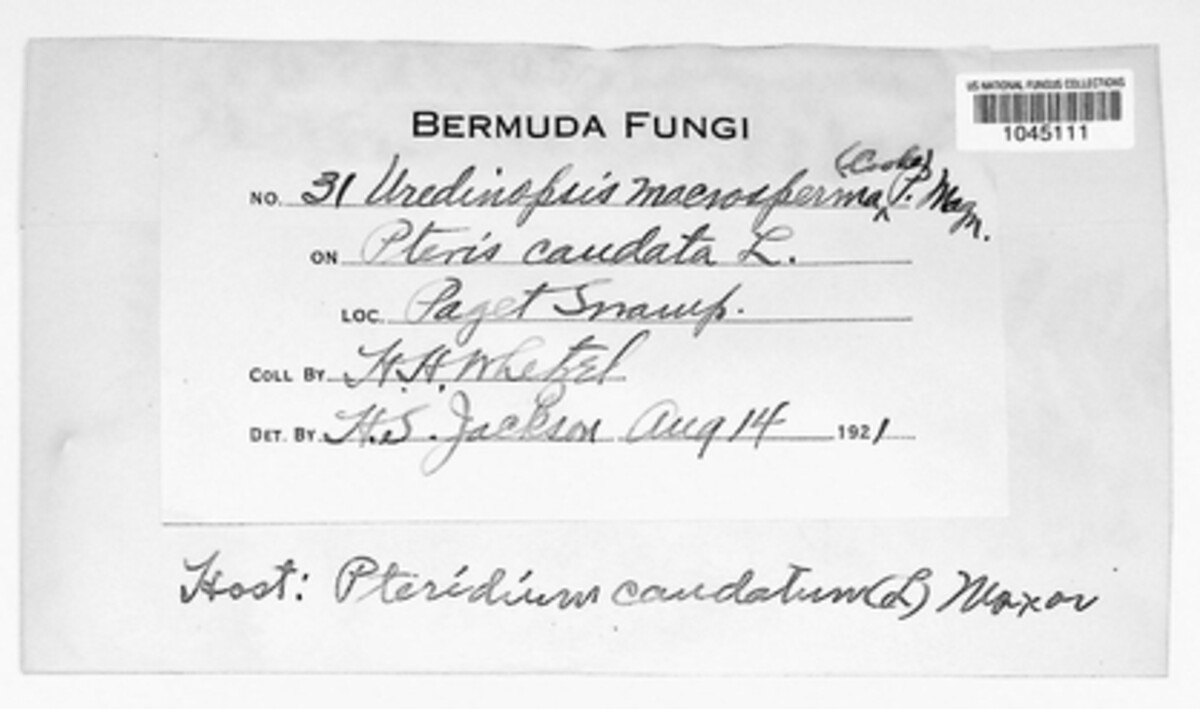 US NATIONAL FUNGUS COLLECTIONS
1045111
BERMUDA FUNGI
NO. 31 Uredinopsis macrosperma (Cooke) P. Magn.
ON Pteris caudata L.
LOC. Paget Swamp.
COLL BY H.H. Whetzel
DET. BY. H.S. Jackson Aug 14 1921
Host: Pteridium caudatum (L) Maxon